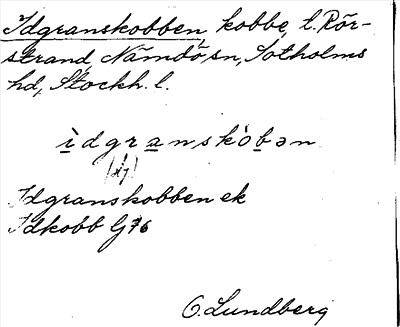 Idgranskobben, kobbe, l. Rör-
strand, Nämdö sn, Sotholms
hd, Stockh. l.
ìdgranskòbən
Idgranskobben ek
Idkobb G76
O. Lundberg